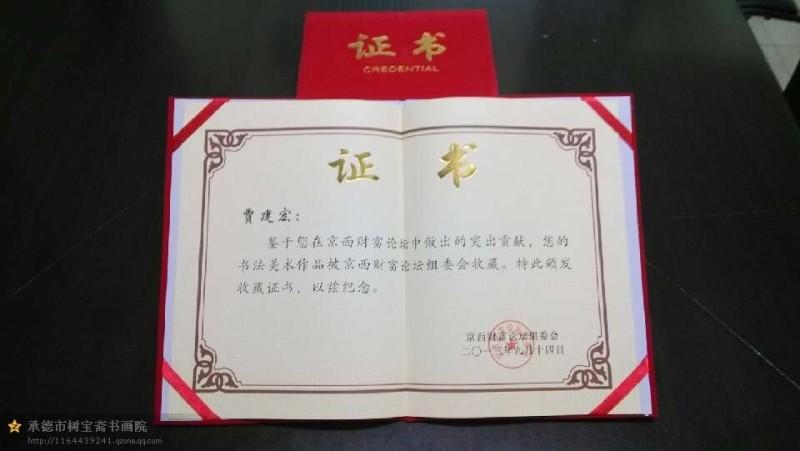 证书
CREDENTIAL
证 书
贾建宏：
鉴于您在京西财富论坛中做出的突出贡献，您的
书法美术作品被京西财富论坛组委会收藏。特此颁发
收藏证书，以兹纪念。
京西财富论坛组委会
二〇一三年九月十四日
承德市树宝斋书画院
http://1164439241.qzone.qq.com